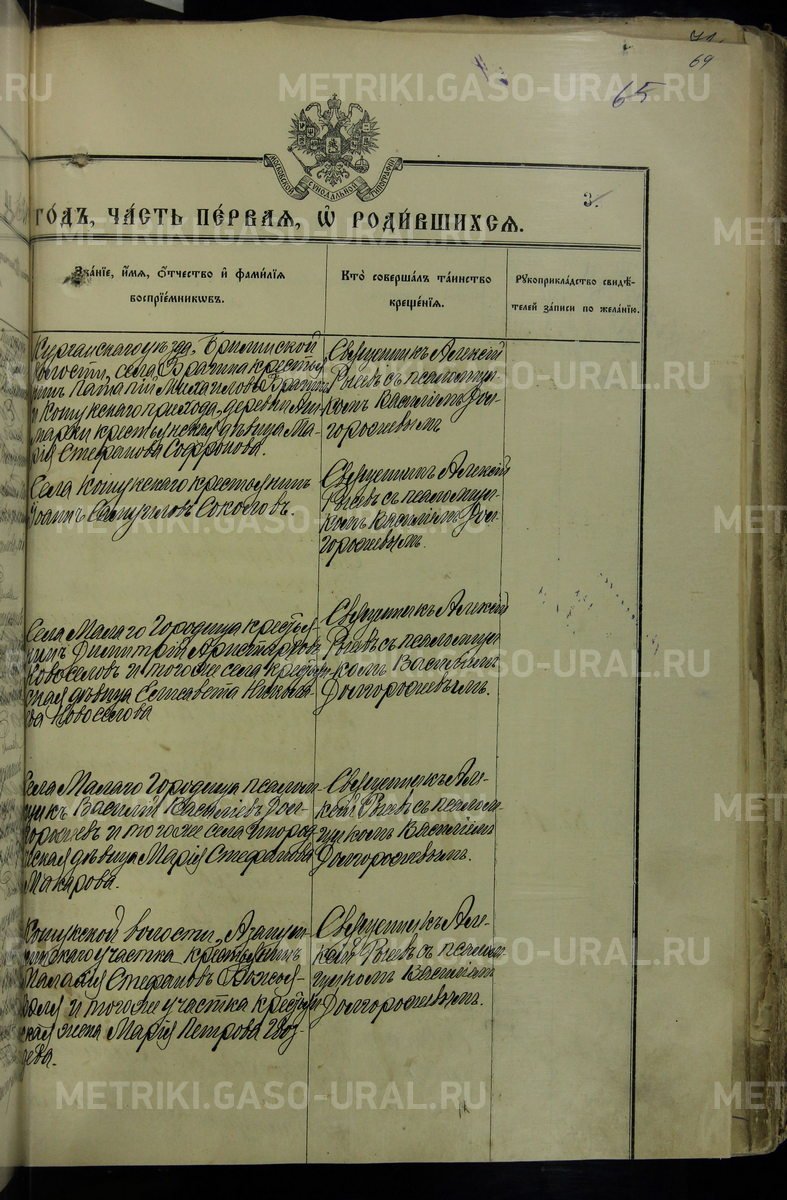 71
69
65
МОСКОВСКОЙ СѴНОДАЛЬНОЙ ТИПОГРАФІИ
3.
ГО́ДЪ, ЧА́СТЬ ПЕ́РВАѦ, Ѡ҆ РОДИ́ВШИХСѦ.
Зва́нїе, и҆́мѧ, ѻ҆́тчество и҆ фами́лїѧ
воспрїе́мникѡвъ.
Кто̀ соверша́лъ та́инство
креще́нїѧ.
Рꙋкоприкла́дство свидѣ́-
телей за́писи по жела́нїю.
Курганскаго уѣзда,
волости, села крестья-
нинъ Михаиловъ
и Кошукскаго прихода, деревни
крестьянская дѣвица Ма-
рія Стефанова Софронова.
Священникъ Алексій
съ псаломщи-
комъ Василіемъ Дол-
горожевымъ
Села Кошукскаго крестьянинъ
Іоаннъ Соколовъ.
Священникъ Алексій
съ псаломщи-
комъ Василіемъ Дол-
горожевымъ.
Села Малаго Городища крестья-
нинъ Димитрій Аристарховъ
Новоселовъ и тогоже села крестьян-
ская дѣвица Елисавета
Новоселова
Священникъ Алексій
съ псаломщи-
комъ Василіемъ
Долгорожевымъ.
Села Малаго Городища псалом-
щикъ Василій Васильевъ Дол-
горожевъ и тогоже села
дѣвица Марія Стефанова
Макарова.
Священникъ Але-
ксій съ псалом-
щикомъ Василіемъ
Долгорожевымъ.
Кошукской волости,
участка крестьянинъ
Малахія Стефановъ
и тогоже участка крестьян-
ская жена Марія Петрова Гвоз-
дева.
Священникъ Але-
ксій съ псалом-
щикомъ Василіемъ
Долгорожевымъ.
METRIKI.GASO-URAL.RU